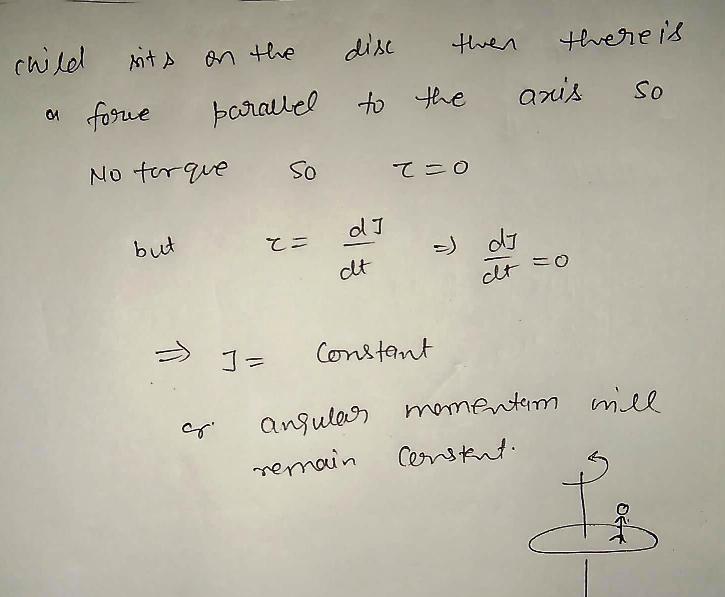 child sits on the disc then there is
a force parallel to the axis so
No torque so τ = 0
but τ = dJ/dt ⇒ dJ/dt = 0
⇒ J = Constant
or angular momentum will
remain Constent.